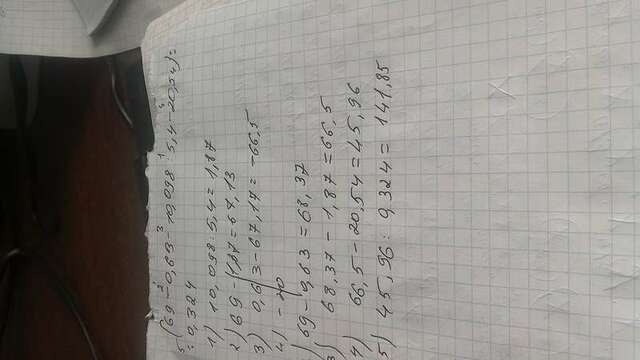 (69-0,63-10,098:5,4-20,54)=
:0,324
1) 10,098:5,4=1,87
2) 69-1,87=67,13
3) 0,63-67,17=-66,5
4) -20
69-0,63=68,37
3) 68,37-1,87=66,5
4) 66,5-20,54=45,96
5) 45,96:0,324=141,85